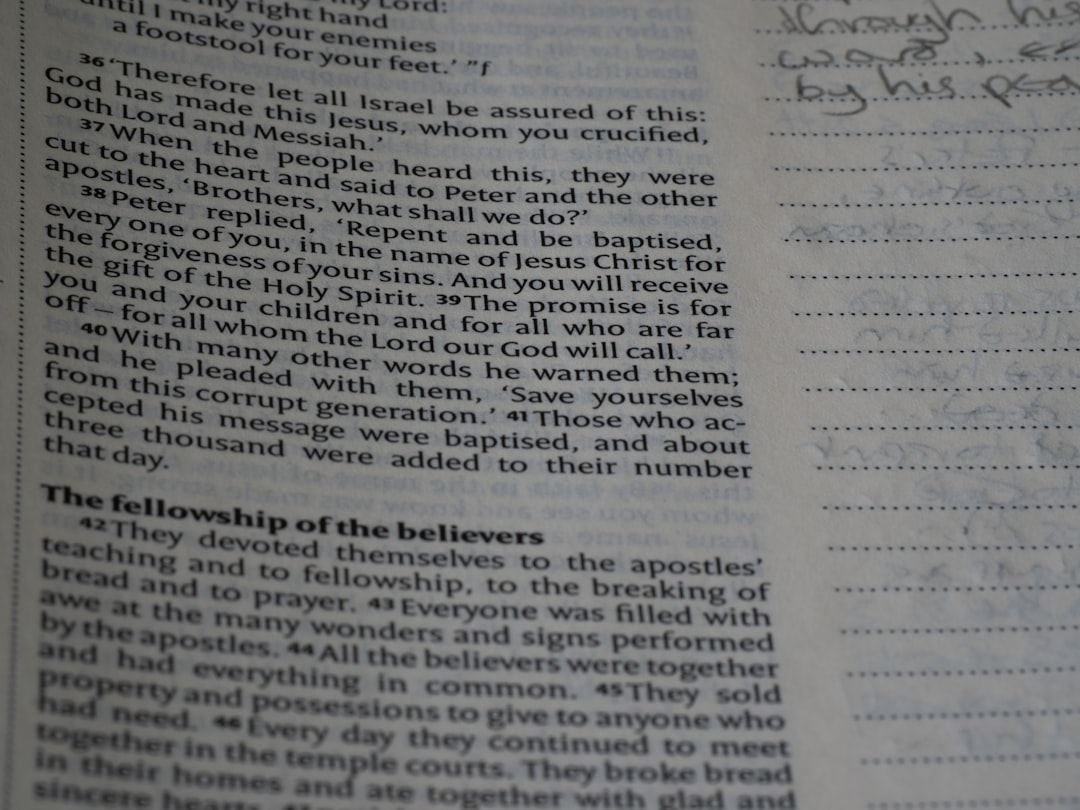 my Lord:
until I make your enemies
a footstool for your feet.’ ”f
36 ‘Therefore let all Israel be assured of this:
God has made this Jesus, whom you crucified,
both Lord and Messiah.’
37 When the people heard this, they were
cut to the heart and said to Peter and the other
apostles, ‘Brothers, what shall we do?’
38 Peter replied, ‘Repent and be baptised,
every one of you, in the name of Jesus Christ for
the forgiveness of your sins. And you will receive
the gift of the Holy Spirit. 39 The promise is for
you and your children and for all who are far
off – for all whom the Lord our God will call.’
40 With many other words he warned them;
and he pleaded with them, ‘Save yourselves
from this corrupt generation.’ 41 Those who ac-
cepted his message were baptised, and about
three thousand were added to their number
that day.
The fellowship of the believers
42 They devoted themselves to the apostles’
teaching and to fellowship, to the breaking of
bread and to prayer. 43 Everyone was filled with
awe at the many wonders and signs performed
by the apostles. 44 All the believers were together
and had everything in common. 45 They sold
property and possessions to give to anyone who
had need. 46 Every day they continued to meet
together in the temple courts. They broke bread
in their homes and ate together with glad and
sincere hearts,
through his
word,
by his